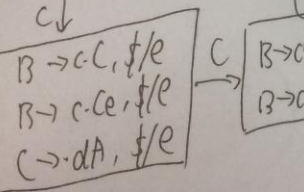 C
B→c·C, $/e
B→c·Ce, $/e
C→·dA, $/e
C
B→c
B→c